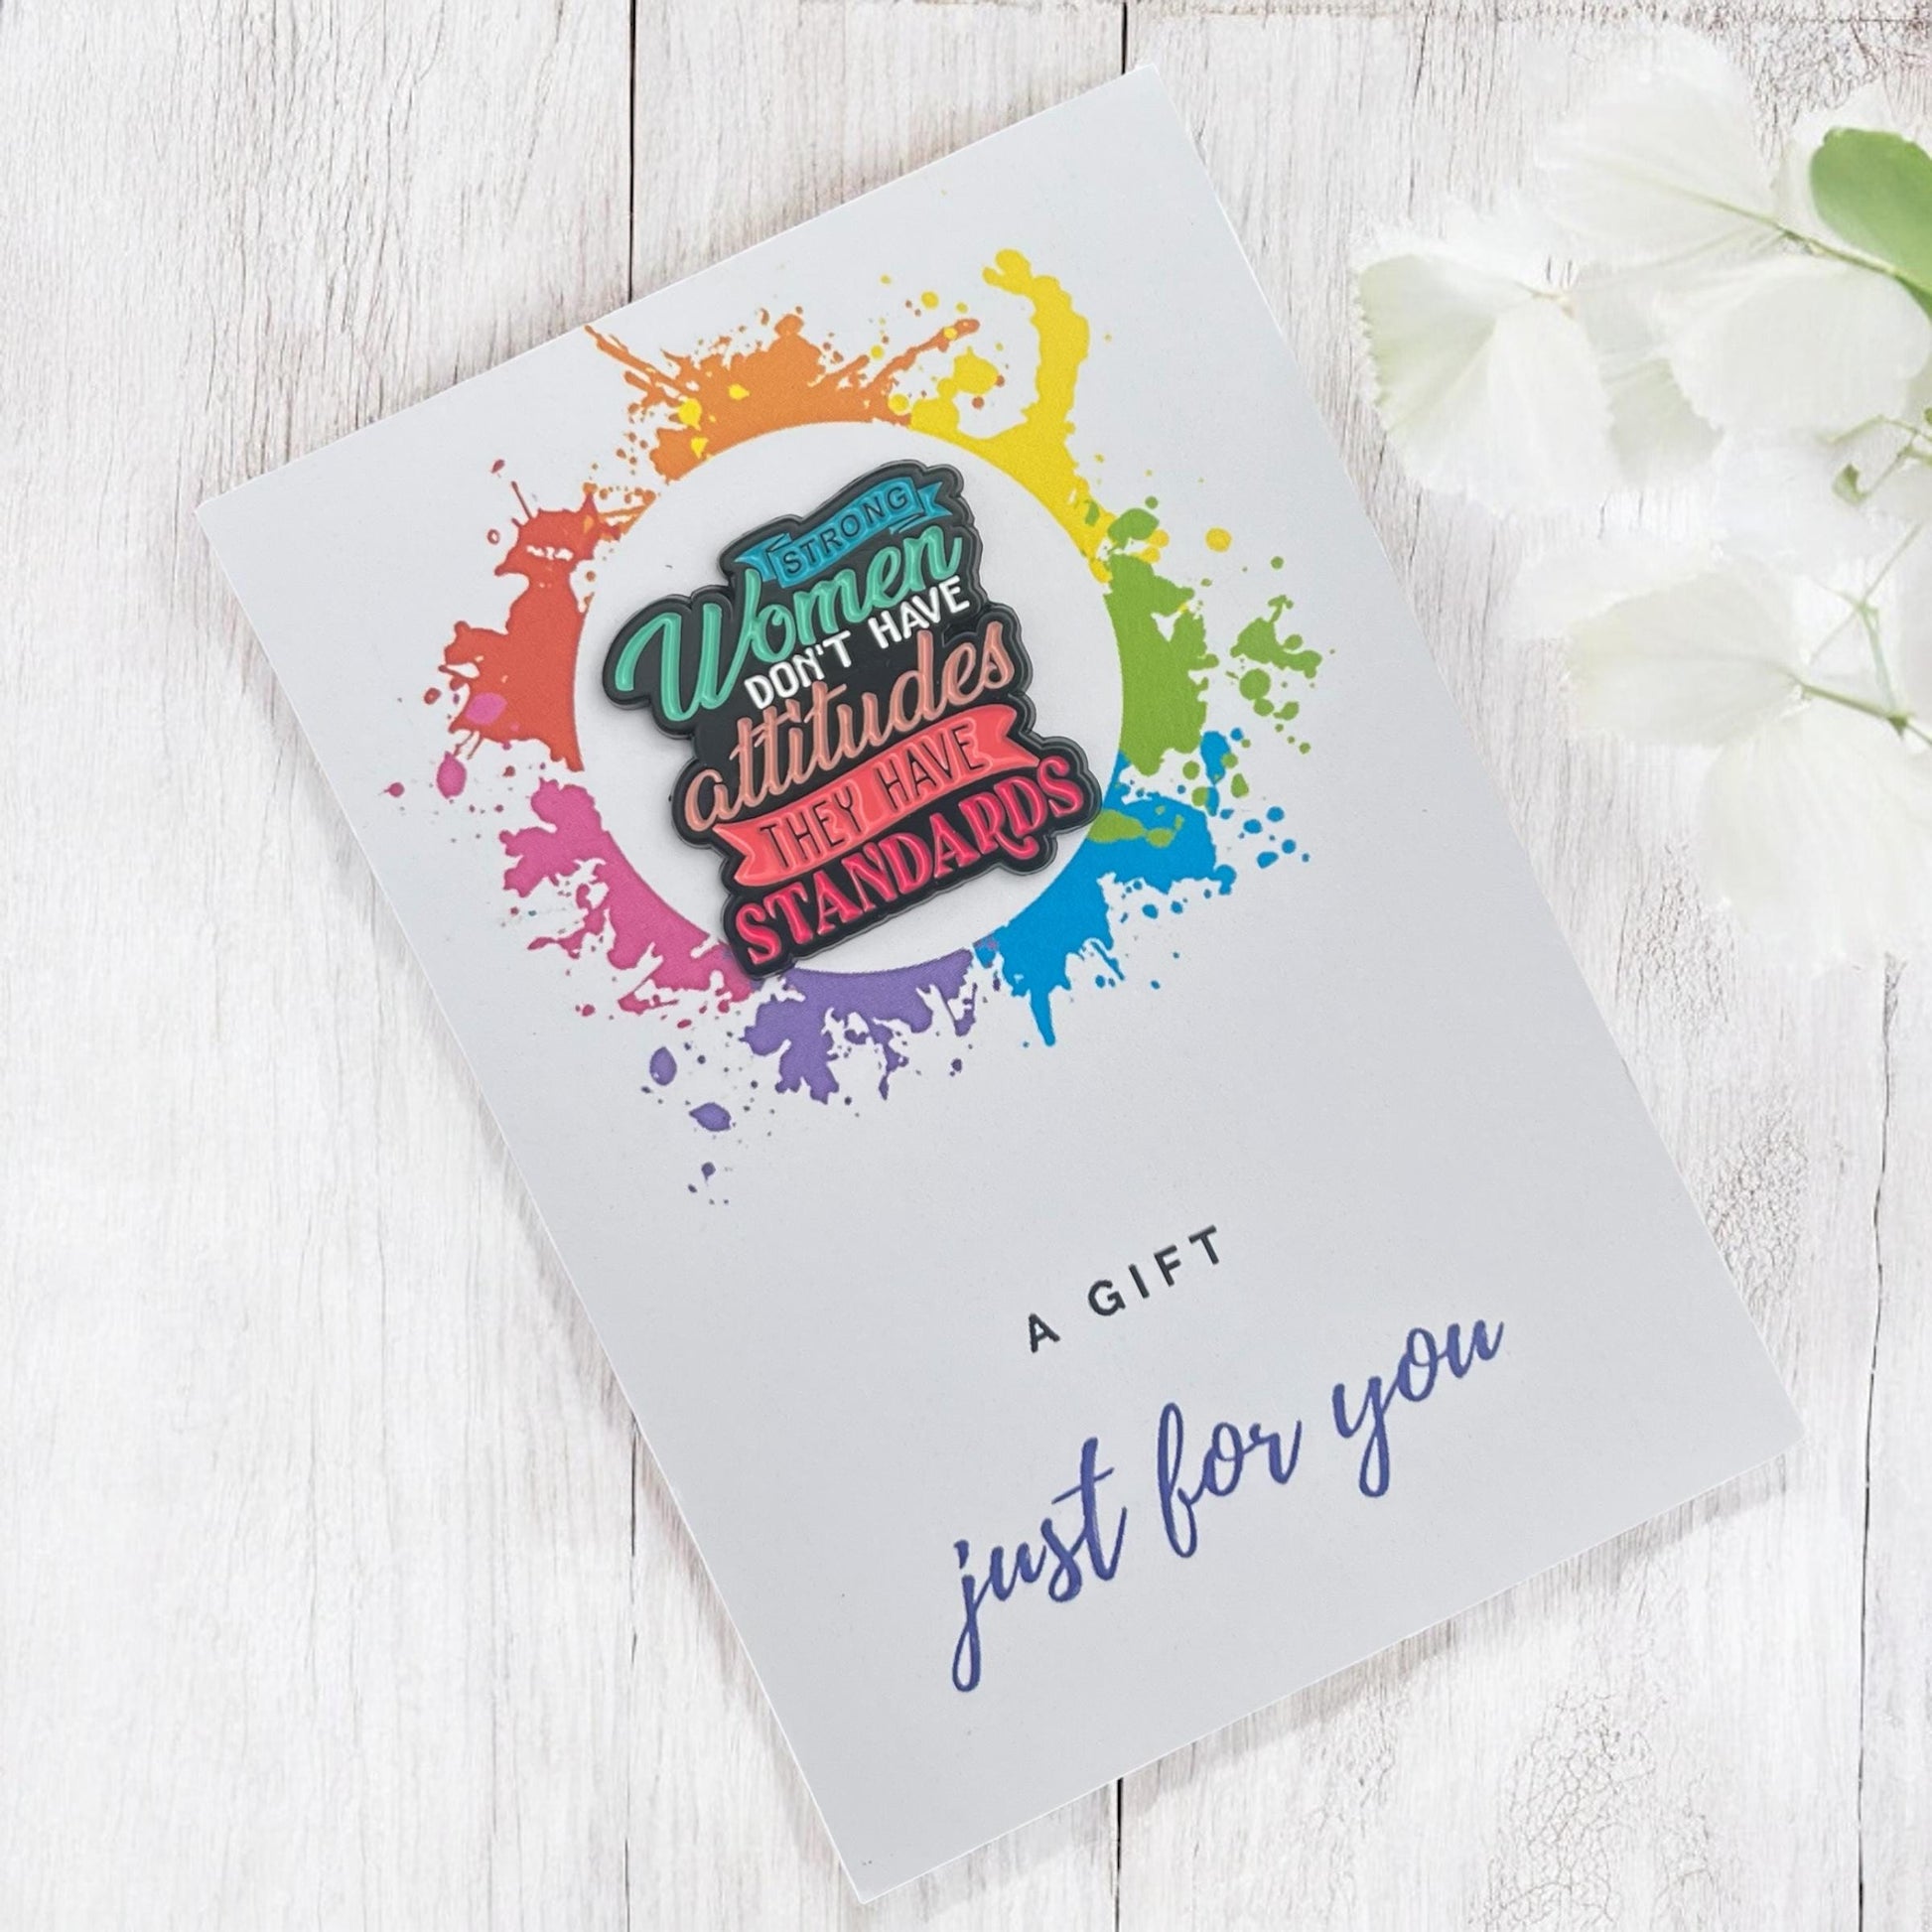 STRONG
Women
DON'T HAVE
attitudes
THEY HAVE
STANDARDS
A GIFT
just for you